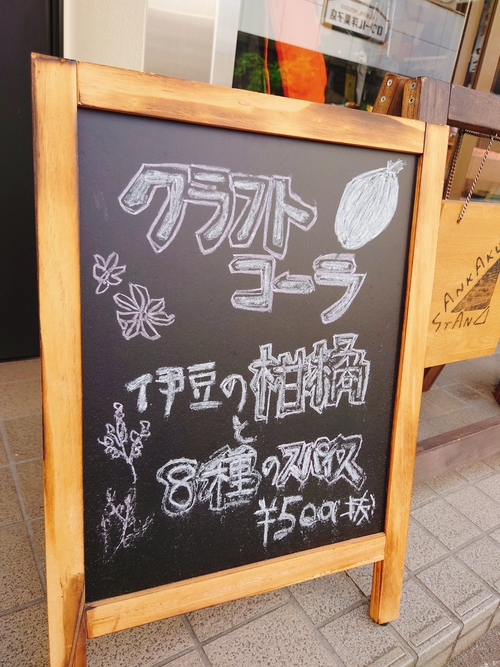 クラフト
コーラ
伊豆の柑橘
と
8種のスパイス
¥500(税抜)
ANKAKU
STAND